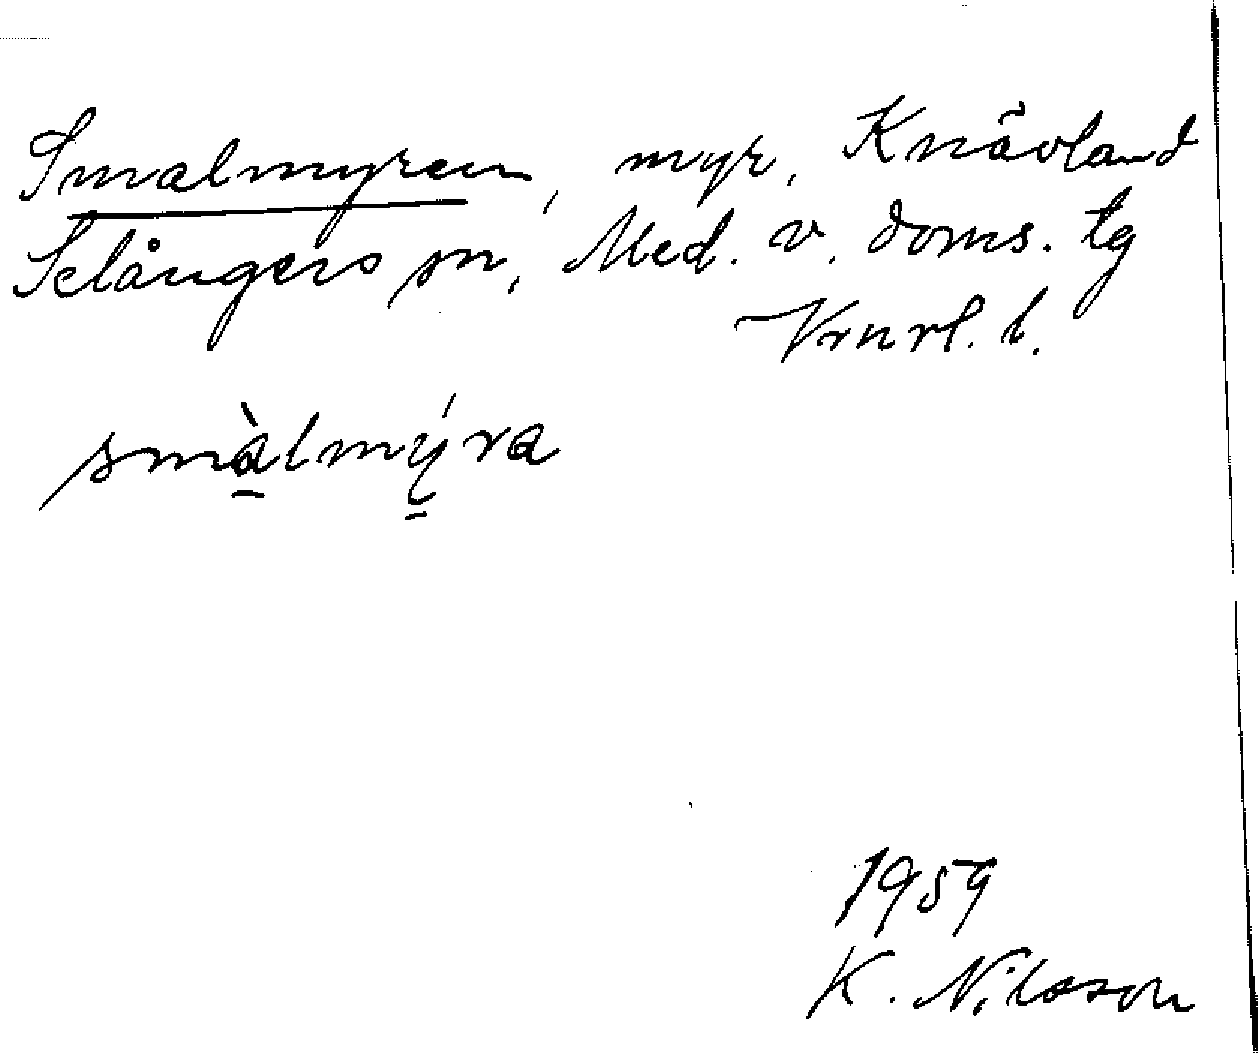 Smalmyren, myr, Knävland
Selångers sn, Med. v. doms. tg
Vrnrl. b.
smàlmýra
1959
K. Nilsson